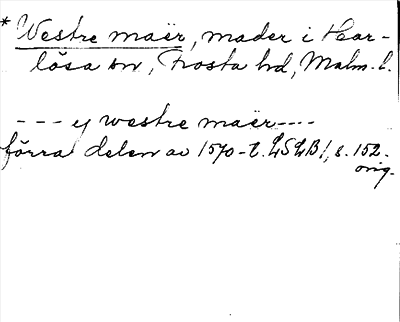 * Westre maër, mader i Har-
lösa sn, Frosta hd, Malm. l.
--- ej westre maër----
förra delen av 1570-t. LSLB1, s. 152.
orig.